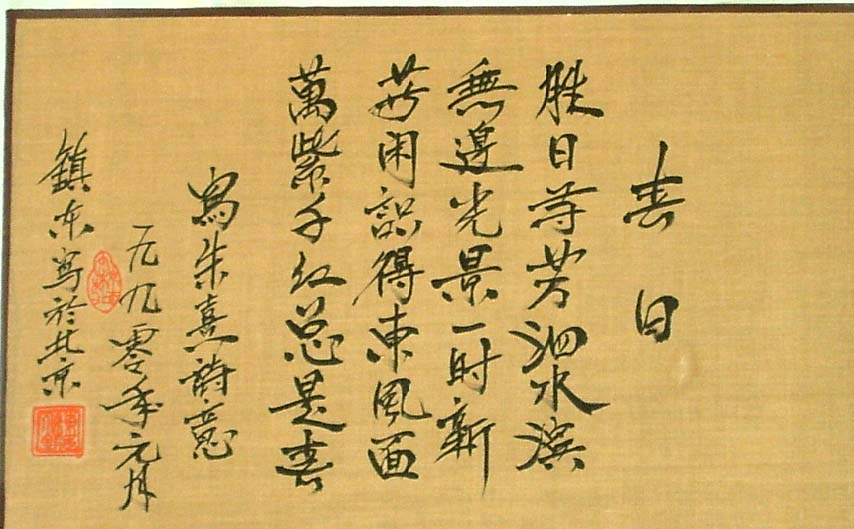 春日
胜日寻芳泗水滨
無邊光景一时新
等闲识得東風面
萬紫千红总是春
寫朱熹詩意
一九九零年元月
鎮东写於北京